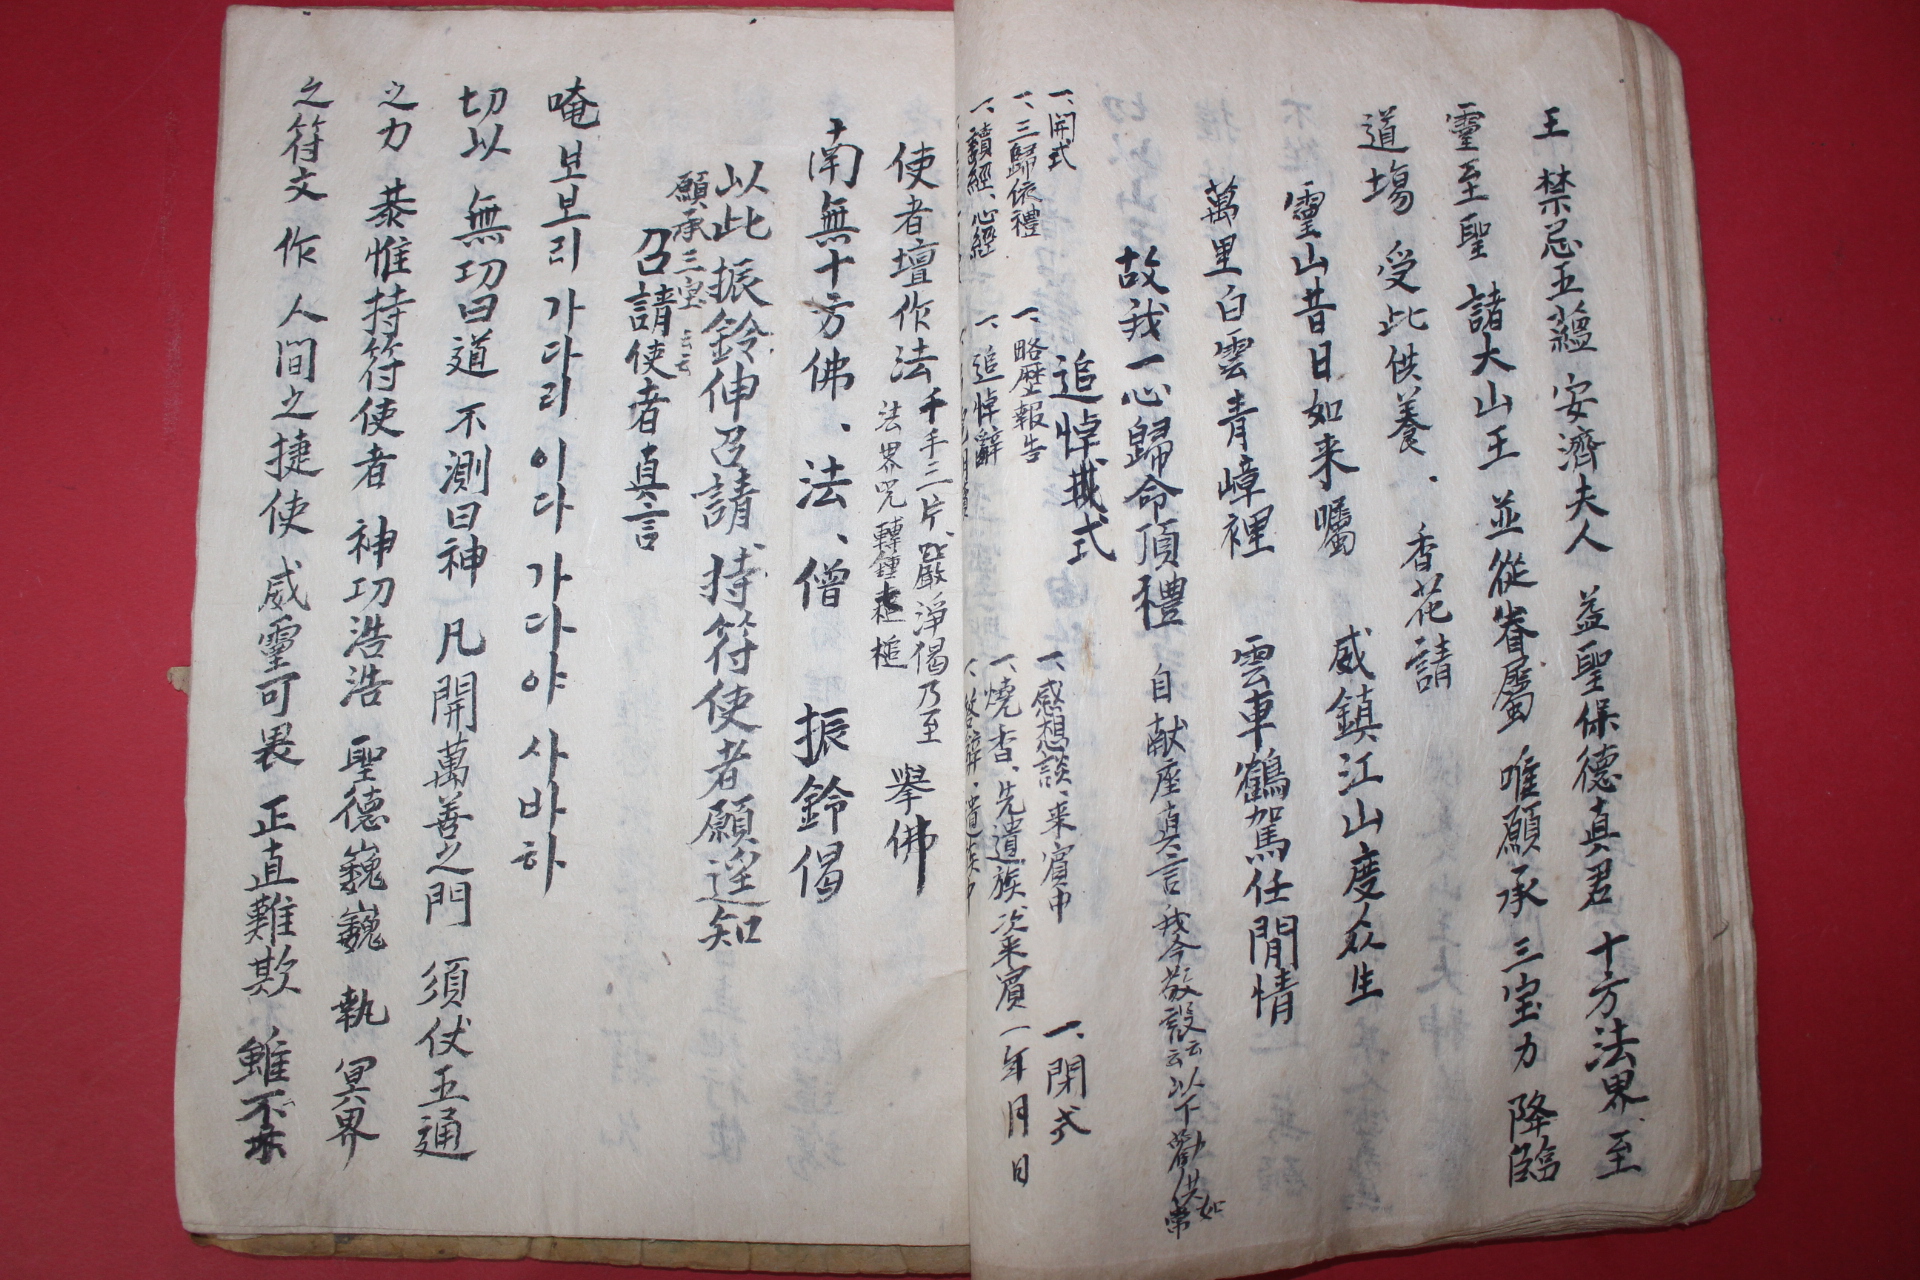 王 禁忌五蘊 安濟夫人 益聖保德真君 十方法界 至
靈至聖 諸大山王 並從眷屬 唯願承 三宝力 降臨
道場 受此供養. 香花請
靈山昔日如来囑 威鎮江山度众生
萬里白雲青嶂裡 雲車鶴駕任閒情
故我一心歸命頂禮 自献座真言 我今敬設云云 以下勸供如常
追悼式
一、開式
一、三歸依禮
一、讀經、心經
一、略歷報告
一、追悼辭
一、感想談、来賓中
一、燒香、先遺族、次来賓
一、閉式
一年月日
使者壇作法 千手三片、嚴淨偈乃至 擧佛
法界咒 轉鍾 槌
南無十方佛、法、僧 振鈴偈
以此振鈴伸召請 持符使者願遥知
願承三宝 云云
召請使者真言
唵 보보리 가다리 이다 가다야 사바하
切以 無功曰道 不測曰神 凡開萬善之門 須仗五通
之力 恭惟持符使者 神功浩浩 聖德巍巍 執 冥界
之符文 作 人間之捷使 威靈可畏 正直難欺 雖不